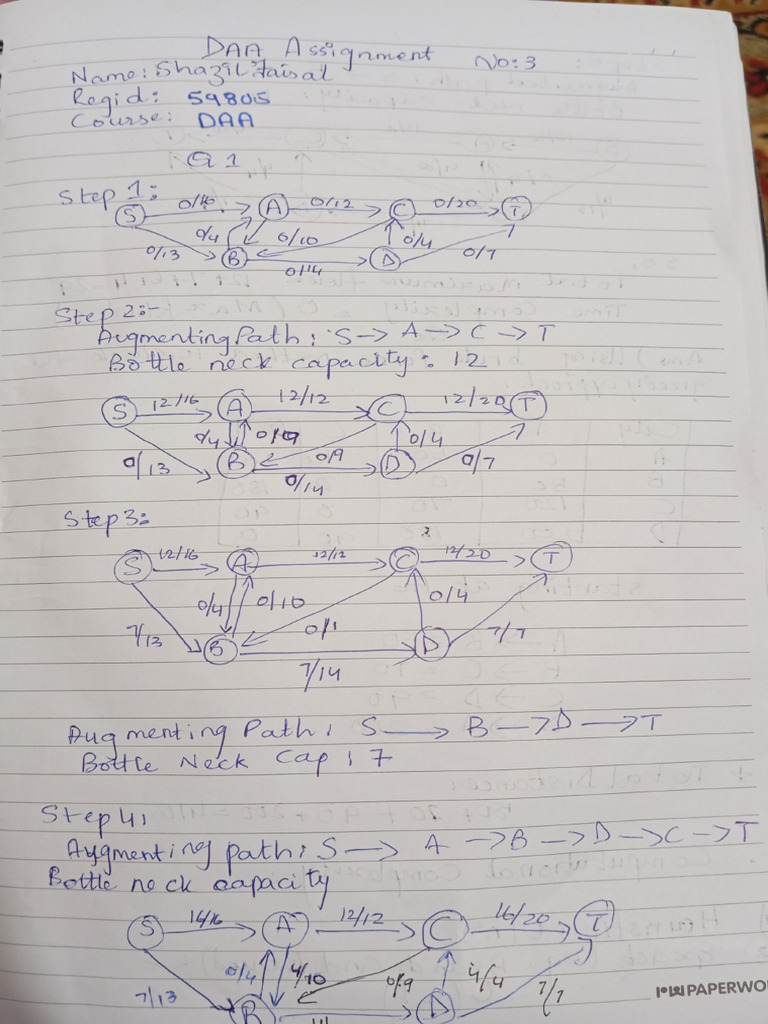 DAA Assignment No:3
Name: Shazil Faisal
Regid: 59805
Course: DAA
Q1
Step 1:
S 0/16 A 0/12 C 0/20 T
0/4 0/10 0/4
0/13 B 0/14 D 0/7
Step 2:-
Augmenting Path: S → A → C → T
Bottle neck capacity: 12
S 12/16 A 12/12 C 12/20 T
0/4 0/10 0/4
0/13 B 0/9 D 0/7
0/14
Step 3:
S 12/16 A 12/12 C 12/20 T
0/4 0/10 0/4
7/13 B 0/1 D 7/7
7/14
Augmenting Path: S → B → D → T
Bottle Neck Cap: 7
Step 4:
Augmenting path: S → A → B → D → C → T
Bottle neck capacity
S 16/16 A 12/12 C 16/20 T
0/4 4/10 0/9 4/4
7/13 B D 7/7
PAPERWO